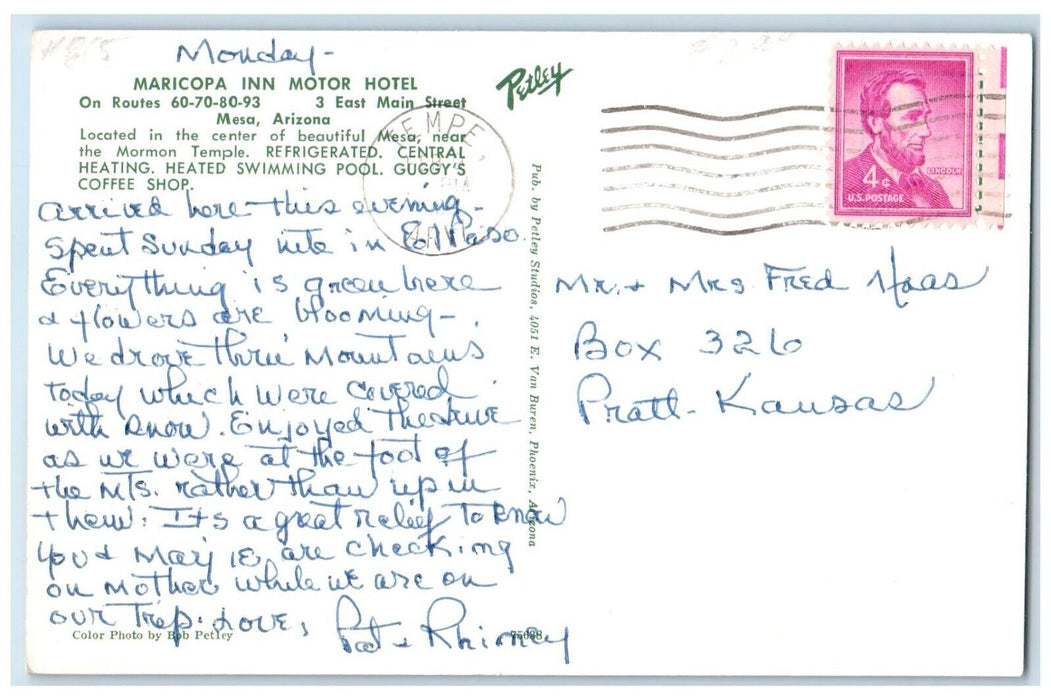 Monday-
MARICOPA INN MOTOR HOTEL
On Routes 60-70-80-93 3 East Main Street
Mesa, Arizona
Located in the center of beautiful Mesa, near
the Mormon Temple. REFRIGERATED. CENTRAL
HEATING. HEATED SWIMMING POOL. GUGGY'S
COFFEE SHOP.
arrived here this evening-
Spent Sunday nite in El Paso.
Everything is green here
& flowers are blooming-.
We drove thru Mountains
today which were covered
with snow. Enjoyed the drive
as we were at the foot of
the Mts. rather than up in
them. Its a great relief to know
you & are checking
on Mother while we are on
our Trip. Love,
Pat &
Color Photo by Bob Petley
75688
Petley
Pub. by Petley Studios, 4051 E. Van Buren, Phoenix, Arizona
TEMPE,
ARIZ
LINCOLN
4¢
U.S. POSTAGE
Mr. & Mrs Fred Haas
Box 326
Pratt- Kansas